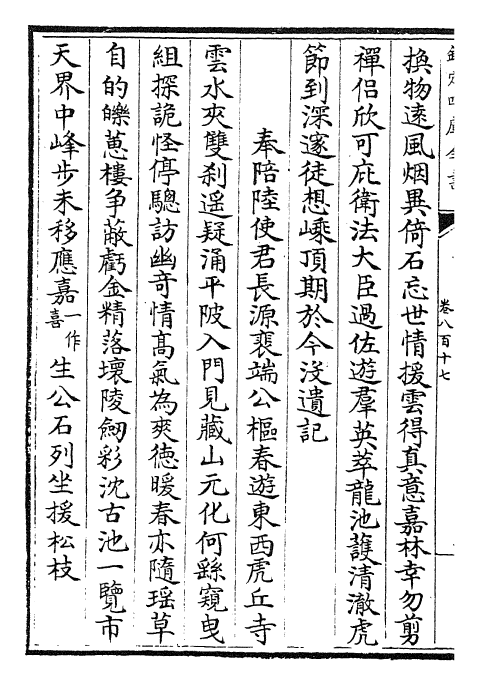 欽定四庫全書
卷八百十七
換物遠風烟異倚石忘世情援雲得真意嘉林幸勿剪
禪侶欣可庇衛法大臣過佐遊羣英萃龍池護清澈虎
節到深邃徒想嵊頂期於今没遺記
奉陪陸使君長源裴端公樞春遊東西虎丘寺
雲水夾雙刹遥疑涌平陂入門見藏山元化何繇窺曳
組探詭怪停驄訪幽竒情髙氣為爽德暖春亦隨瑶草
自的皪蕙樓争蔽虧金精落壞陵劒彩沈古池一覽市
天界中峰步未移應嘉一作喜生公石列坐援松枝